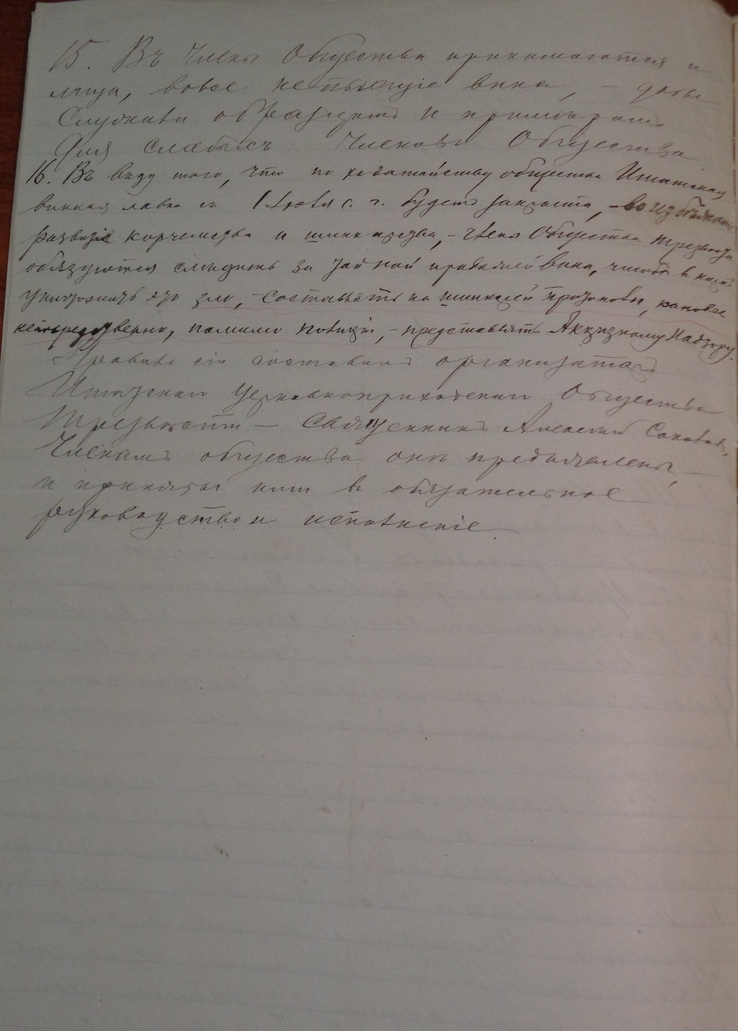 15. Въ члены Общества принимаются и
лица, вовсе не пьющіе вина, – дабы
служили образцомъ и примѣромъ
для слабыхъ членовъ Общества.
16. Въ виду того, что по ходатайству общества Ишатская
винная лавка съ 1 Іюля с. г. будетъ закрыта, – во избѣжаніе
развитія корчемства и шинкарства, – члены Общества трезвости
обязуются слѣдить за тайной продажей вина, чтобъ въ
уничтожить это зло, – составлять на шинкарей протоколы, каковые
непосредственно, помимо полиціи, – представлять Акцизному Надзору.
Правила сіи составилъ организаторъ
церковноприходскаго Общества
Трезвости – священникъ Алексѣй
Членамъ общества онѣ предъявлены, –
и приняты ими въ обязательное
руководство и исполненіе.